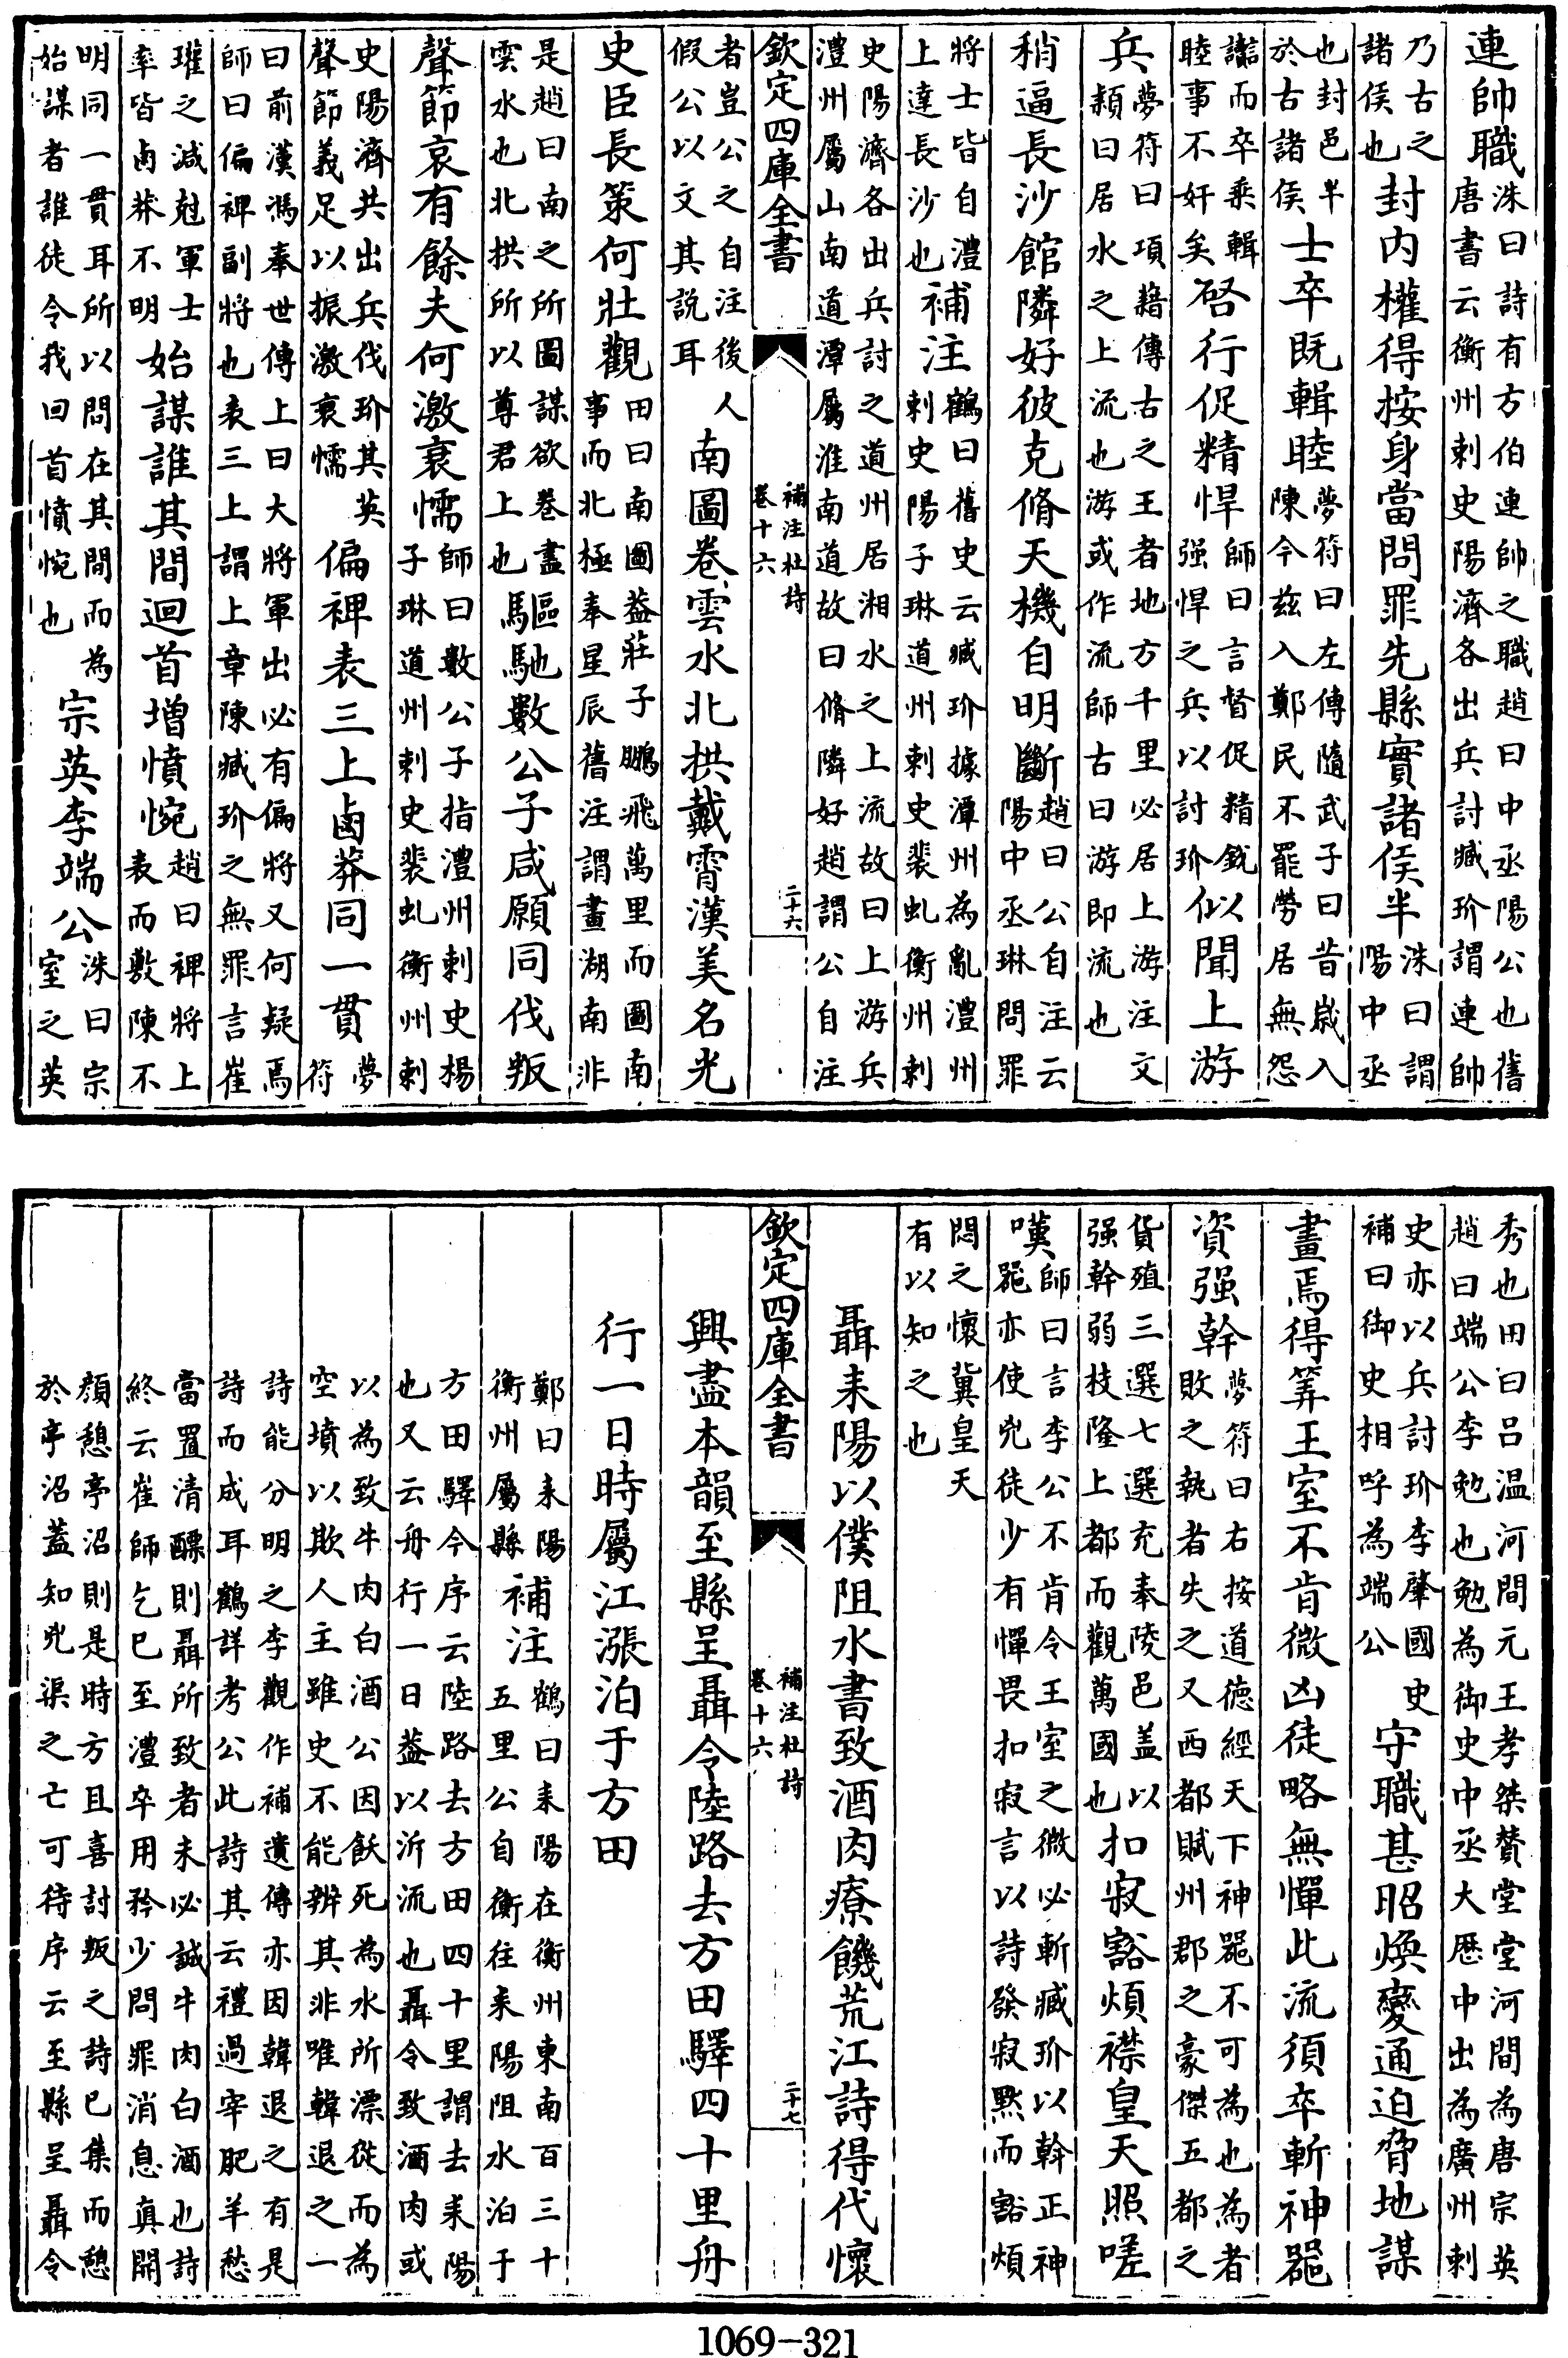 連帥職洙曰詩有方伯連帥之職趙曰中丞陽公也舊唐書云衡州刺史陽濟各出兵討臧玠謂連帥
乃古之諸侯也封内權得按身當問罪先縣實諸侯半洙曰謂陽中丞
也封邑半於古諸侯士卒既輯睦夢符曰左傳隨武子曰昔嵗入陳今兹入鄭民不罷勞居無怨
讟而卒乘輯睦事不奸矣啓行促精悍師曰言督促精鋭强悍之兵以討玠似聞上游
兵夢符曰項籍傳古之王者地方千里必居上游注文頴曰居水之上流也游或作流師古曰游即流也
稍逼長沙館隣好彼克脩天機自明斷趙曰公自注云陽中丞琳問罪
將士皆自澧上達長沙也補注鶴曰舊史云臧玠據潭州為亂澧州刺史陽子琳道州刺史裴虬衡州刺
史陽濟各出兵討之道州居湘水之上流故曰上游兵澧州屬山南道潭屬淮南道故曰脩隣好趙謂公自注
欽定四庫全書 補注杜詩 卷十六 二十六
者豈公之自注後人假公以文其説耳南圖卷雲水北拱戴霄漢美名光
史臣長策何壯觀田曰南圖葢莊子鵬飛萬里而圖南事而北極奉星辰舊注謂畫湖南非
是趙曰南之所圖謀欲卷盡雲水也北拱所以尊君上也驅馳數公子咸願同伐叛
聲節哀有餘夫何激衰懦師曰數公子指澧州刺史楊子琳道州刺史裴虬衡州刺
史陽濟共出兵伐玠其英聲節義足以振激衰懦偏裨表三上鹵莽同一貫夢符
曰前漢馮奉世傳上曰大將軍出必有偏將又何疑焉師曰偏裨副將也表三上謂上章陳臧玠之無罪言崔
瓘之減尅軍士率皆鹵莽不明始謀誰其間迴首增憤惋趙曰裨將上表而敷陳不
明同一貫耳所以問在其間而為始謀者誰徒令我回首憤惋也宗英李端公洙曰宗室之英
秀也田曰吕温河間元王孝㷼賛堂堂河間為唐宗英趙曰端公李勉也勉為御史中丞大厯中出為廣州刺
史亦以兵討玠李肇國史補曰御史相呼為端公守職甚昭煥變通迫脅地謀
畫焉得筭王室不肯微凶徒略無憚此流須卒斬神器
資强幹夢符曰右按道德經天下神器不可為也為者敗之執者失之又西都賦州郡之豪傑五都之
貨殖三選七選充奉陵邑盖以强幹弱枝隆上都而觀萬國也扣寂豁煩襟皇天照嗟
嘆師曰言李公不肯令王室之微必斬臧玠以幹正神器亦使兇徒少有憚畏扣寂言以詩發寂黙而豁煩
悶之懷冀皇天有以知之也
聶耒陽以僕阻水書致酒肉療饑荒江詩得代懷
欽定四庫全書 補注杜詩 卷十六 二十七
興盡本韻至縣呈聶令陸路去方田驛四十里舟
行一日時屬江漲泊于方田
鄭曰耒陽衡州屬縣補注鶴曰耒陽在衡州東南百三十五里公自衡往耒陽阻水泊于
方田驛今序云陸路去方田四十里謂去耒陽也又云舟行一日葢以沂流也聶令致酒肉或
以為致牛肉白酒公因飫死為水所漂從而為空墳以欺人主雖史不能辨其非唯韓退之一
詩能分明之李觀作補遺傳亦因韓退之有是詩而成耳鶴詳考公此詩其云禮過宰肥羊愁
當置清醥則聶所致者未必誠牛肉白酒也詩終云崔師乞已至澧卒用矜少問罪消息真開
顔憩亭沼則是時方且喜討叛之詩已集而憩於亭沼葢知兇渠之亡可待序云至縣呈聶令
1069-321